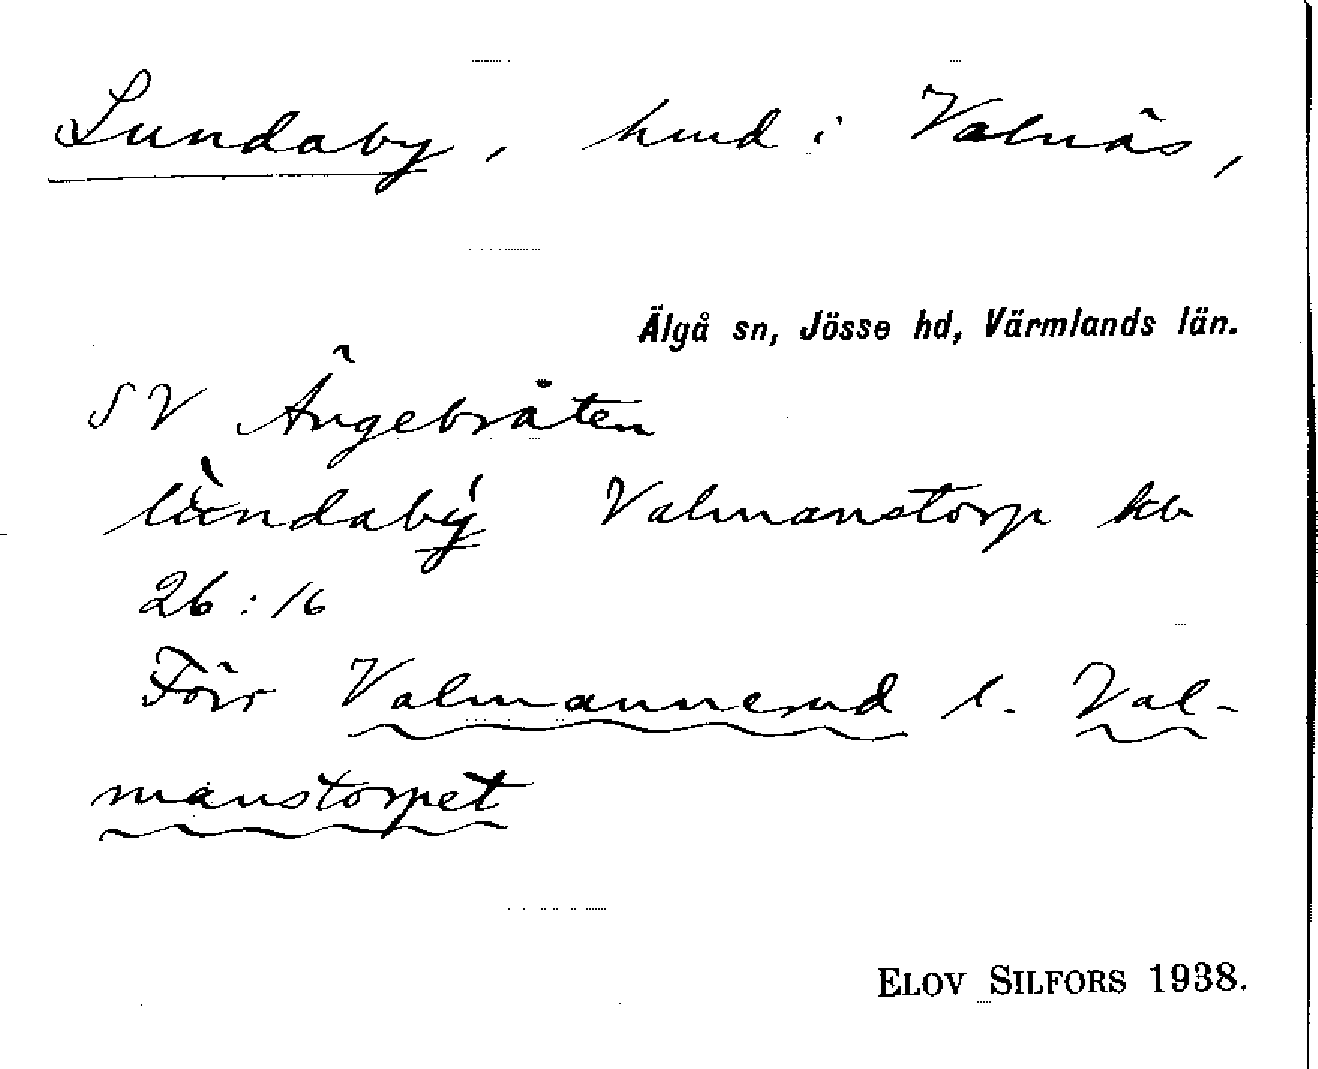 Lundaby, hmd i Valnäs,
Älgå sn, Jösse hd, Värmlands län.
SV Ängebråten
lùndabý Valmanstorp kb
26:16
Förr Valmannerud l. Val-
manstorpet
ELOV SILFORS 1938.